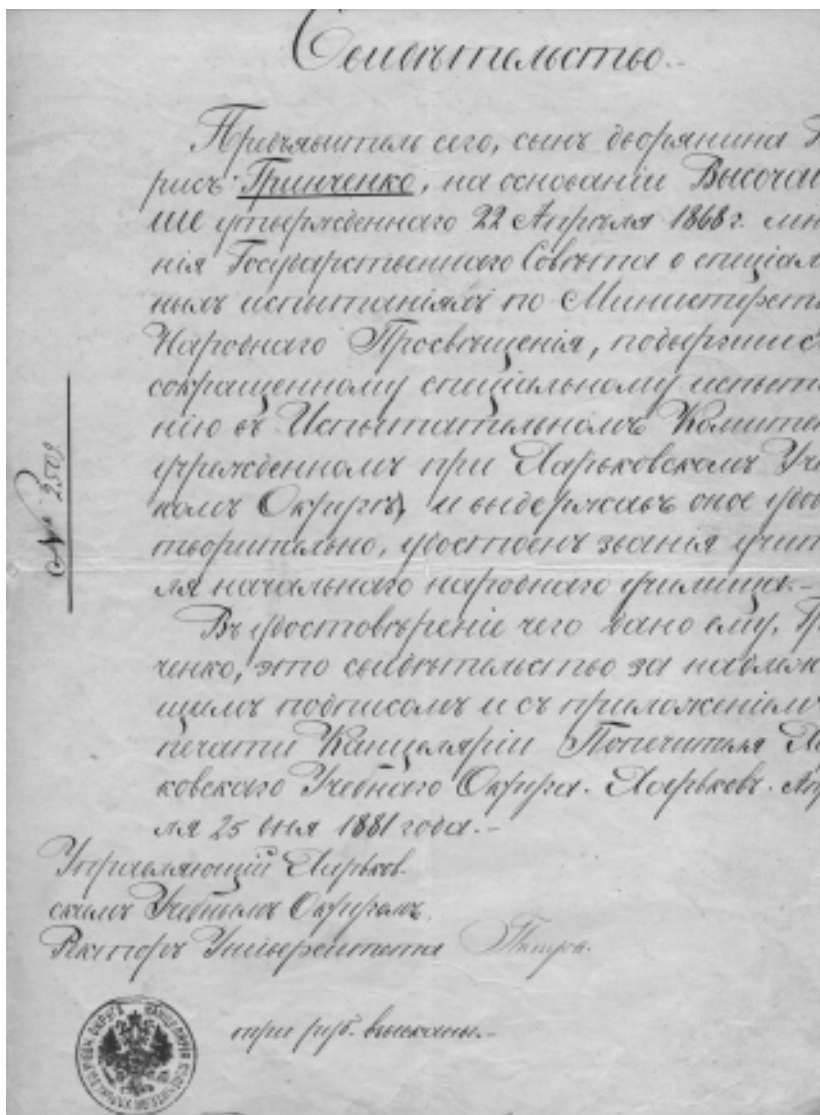 Свидѣтельство.-
Предъявитель сего, сынъ дворянина
рисъ Гринченко, на основаніи Высочай
ше утвержденнаго 22 Апрѣля 1868 г. мнѣ
нія Государственнаго Совѣта о спеціал
нымъ испытаніямъ по Министерст
Народнаго Просвѣщенія, подвергшис
сокращенному спеціальному испыта
нію въ Испытательномъ Комите
учрежденномъ при Харьковскомъ Уче
номъ Округѣ, и выдержавъ оное удов
творительно, удостоенъ званія учит
ля начальнаго народнаго училища.-
Въ удостовѣреніе чего дано ему, Гр
ченко, это свидѣтельство за надлежа
щимъ подписомъ и съ приложеніемъ
печати Канцеляріи Попечителя Ха
ковскаго Учебнаго Округа. Харьковъ. Апр
ля 25 дня 1881 года.-
№ 2509
Управляющій Харьков
скимъ Учебнымъ Округомъ,
Ректоръ Университета Питра.
три руб. взысканы.-
КАНЦЕЛЯРІЯ ПОПЕЧИТЕЛЯ ХАРЬКОВ. УЧЕБН. ОКРУГА